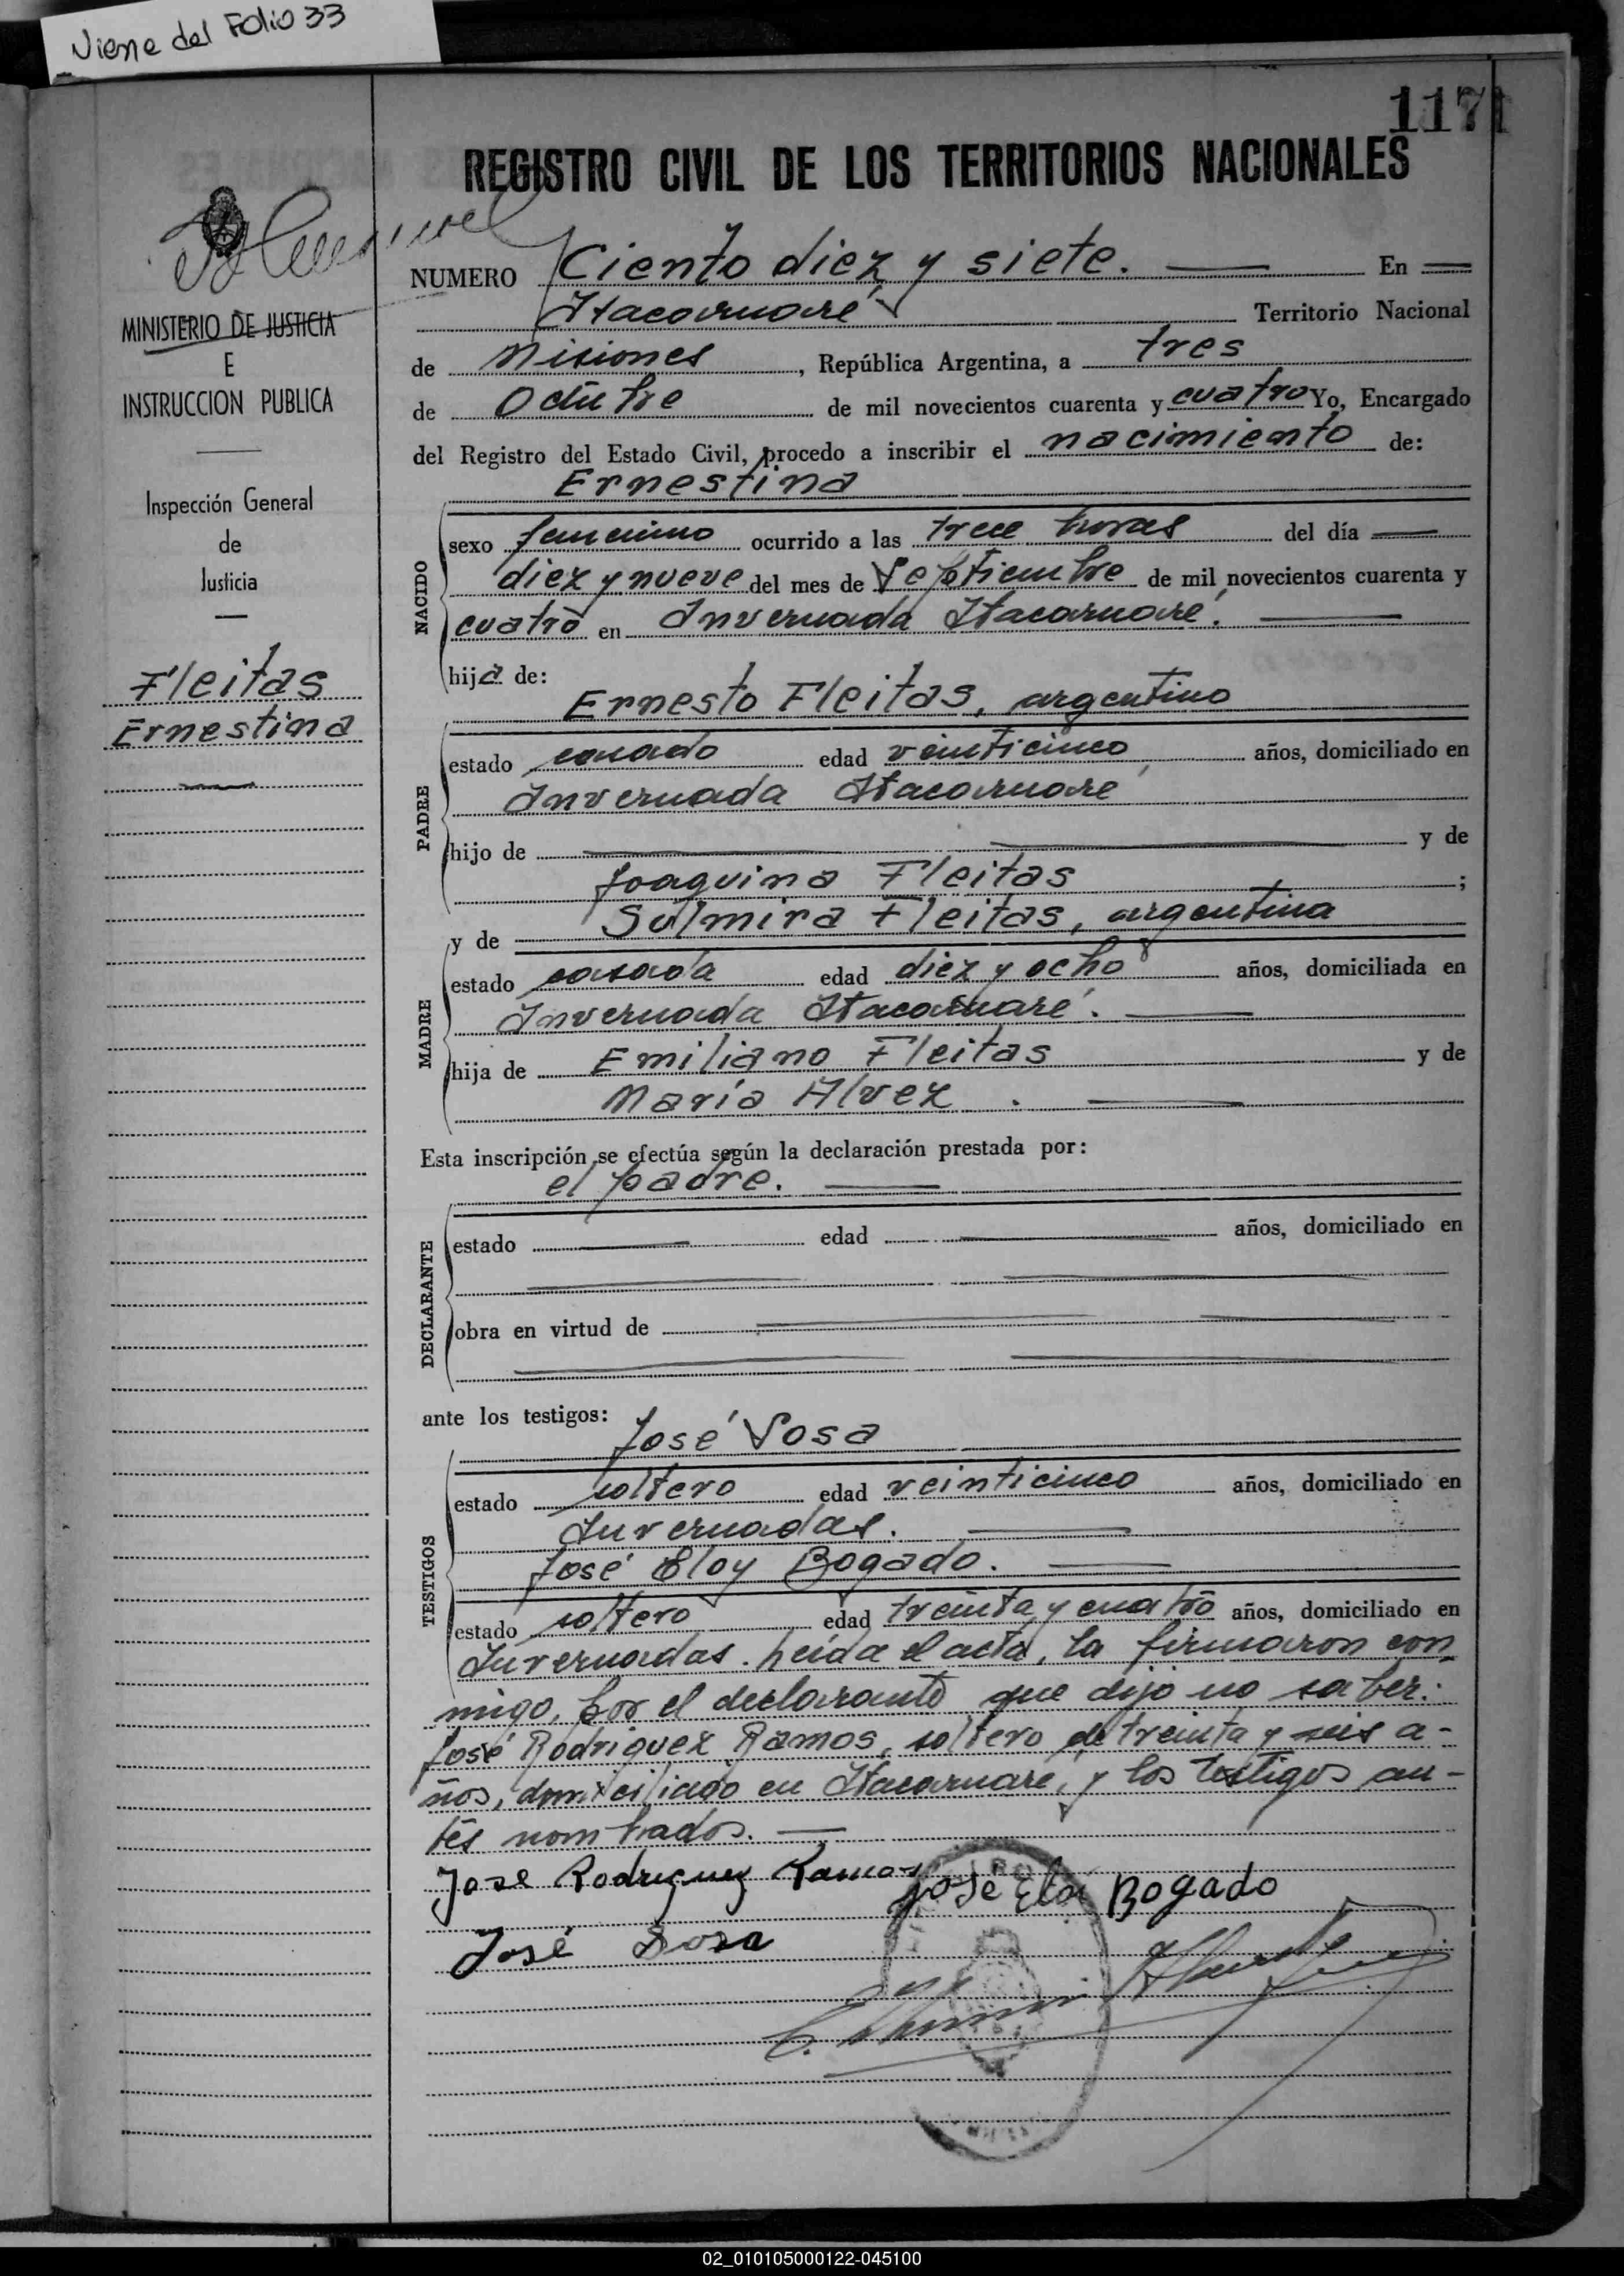 Viene del Folio 33
1171
REGISTRO CIVIL DE LOS TERRITORIOS NACIONALES
MINISTERIO DE JUSTICIA
E
INSTRUCCION PUBLICA
Inspección General
de
Justicia
Fleitas
Ernestina
NUMERO Ciento diez y siete. En
Itacaruaré Territorio Nacional
de Misiones, República Argentina, a tres
de Octubre de mil novecientos cuarenta y cuatro Yo, Encargado
del Registro del Estado Civil, procedo a inscribir el nacimiento de:
Ernestina
NACIDO
sexo femenino ocurrido a las trece horas del día
diez y nueve del mes de Septiembre de mil novecientos cuarenta y
cuatro en Invernada Itacaruaré.
hija de:
Ernesto Fleitas, argentino
PADRE
estado casado edad veinticinco años, domiciliado en
Invernada Itacaruaré
hijo de y de
Joaquina Fleitas ;
y de Sulmira Fleitas, argentina
MADRE
estado casada edad diez y ocho años, domiciliada en
Invernada Itacaruaré.
hija de Emiliano Fleitas y de
María Alvez .
Esta inscripción se efectúa según la declaración prestada por:
el padre.
DECLARANTE
estado edad años, domiciliado en
obra en virtud de
ante los testigos:
José Sosa
TESTIGOS
estado soltero edad veinticinco años, domiciliado en
Invernadas.
José Eloy Bogado.
estado soltero edad treinta y cuatro años, domiciliado en
Invernadas. Leída el acta, la firmaron con-
migo, por el declarante que dijo no saber:
José Rodriguez Ramos, soltero de treinta y seis a-
ños, domiciliado en Itacaruaré, y los testigos an-
tes nombrados.
Jose Rodriguez Ramos José Eloi Bogado
José Sosa
02_010105000122-045100